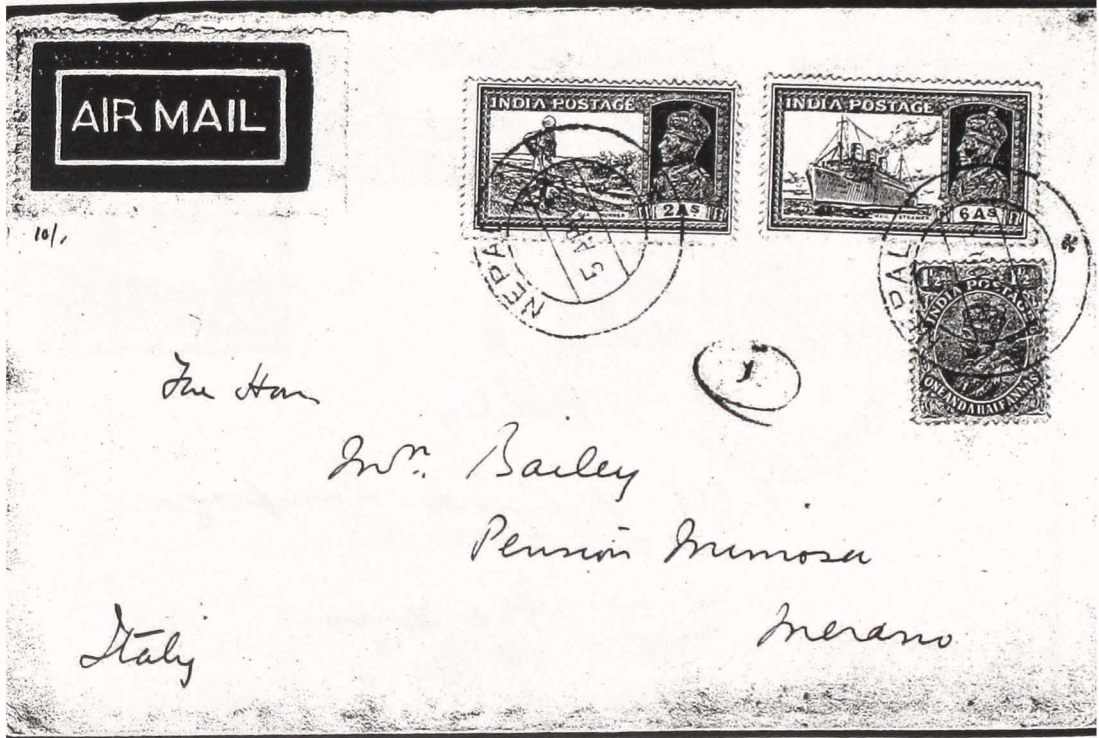 AIR MAIL
10/.
INDIA POSTAGE
2As
INDIA POSTAGE
MAIL STEAMER
6As
NEPAL
5 APR
PAL
1½ 1½
INDIA POSTAGE
ONE AND A HALF ANNAS
The Hon
Mrs. Bailey
Pension Mimosa
Merano
Italy